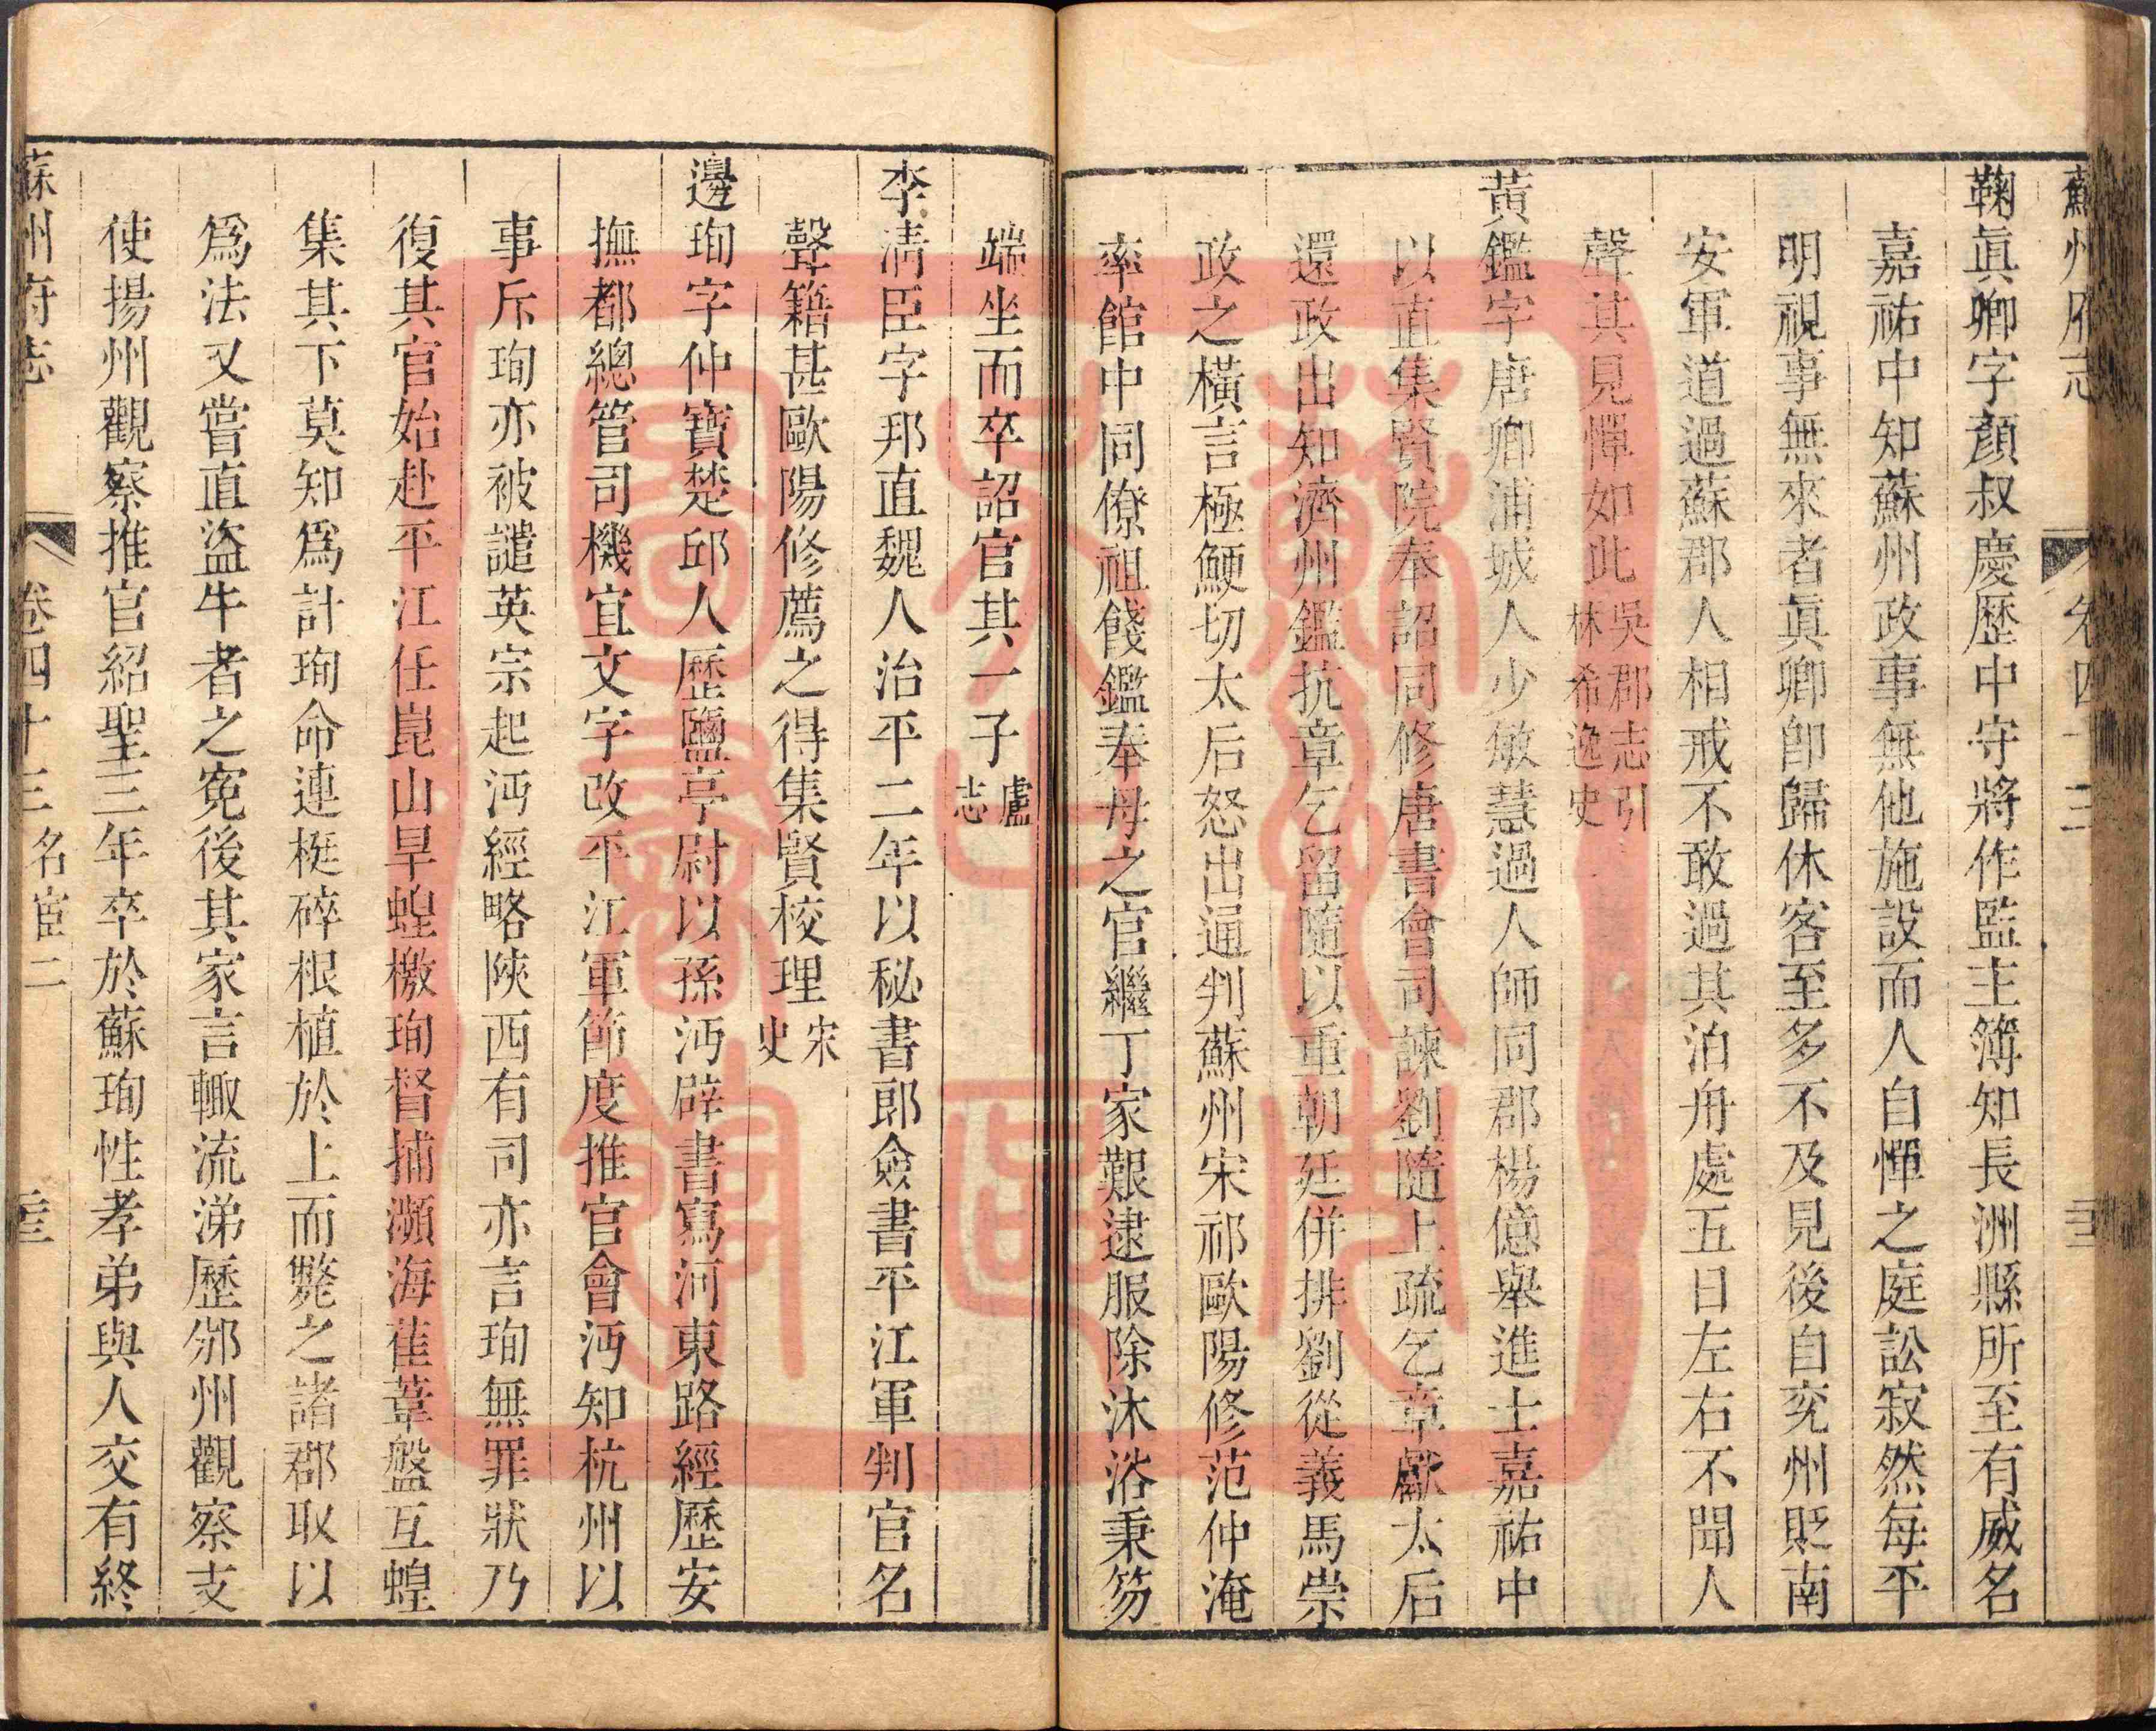 蘇州府志 卷四十三
鞠眞卿字顏叔慶歷中守將作監主簿知長洲縣所至有威名
嘉祐中知蘇州政事無他施設而人自憚之庭訟寂然每平
明視事無來者眞卿卽歸休客至多不及見後自兖州貶南
安軍道過蘇郡人相戒不敢過其泊舟處五日左右不聞人
聲其見憚如此吳郡志引林希逸史
黃鑑字唐卿浦城人少敏慧過人師同郡楊億舉進士嘉祐中
以直集賢院奉詔同修唐書會司諫劉隨上疏乞章獻太后
還政出知濟州鑑抗章乞留隨以重朝廷併排劉從義馬崇
政之橫言極鯁切太后怒出通判蘇州宋祁歐陽修范仲淹
率館中同僚祖餞鑑奉母之官繼丁家艱逮服除沐浴秉笏
端坐而卒詔官其一子盧志
李清臣字邦直魏人治平二年以秘書郎僉書平江軍判官名
聲籍甚歐陽修薦之得集賢校理宋史
邊珣字仲寶楚邱人歷鹽亭尉以孫沔辟書寫河東路經歷安
撫都總管司機宜文字改平江軍節度推官會沔知杭州以
事斥珣亦被譴英宗起沔經略陝西有司亦言珣無罪狀乃
復其官始赴平江任崑山旱蝗檄珣督捕瀕海萑葦盤互蝗
集其下莫知爲計珣命連梃碎根植於上而斃之諸郡取以
爲法又嘗直盜牛者之寃後其家言輙流涕歷邠州觀察支
使揚州觀察推官紹聖三年卒於蘇珣性孝弟與人交有終
蘇州府志 卷四十三 名宦二